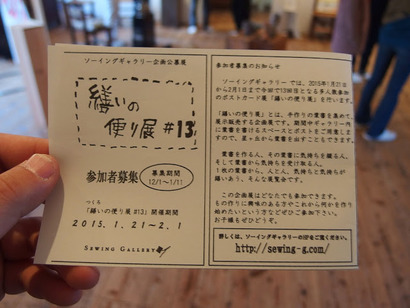 ソーイングギャラリー企画公募展
繕いの
便り展 #13
参加者募集
募集期間
12/1〜1/11
つくろ
「繕いの便り展 #13」開催期間
2015. 1. 21〜2. 1
SEWING GALLERY
参加者募集のお知らせ
ソーイングギャラリーでは、2015年1月21日
から2月1日まで今回で13回目となる多人数参加
のポストカード展「繕いの便り展」を行います。
「繕いの便り展」とは、手作りの葉書を集めて、
展示販売する企画展です。期間中ギャラリー内
に葉書を書けるスペースとポストをご用意しま
すので、直ぐ出から葉書を出すこともできます。
葉書を作る人。その葉書に気持ちを綴る人。
そして葉書から気持ちを受け取る人。
1枚の葉書から、人と人、気持ちと気持ちが
繕いあう。そんな展覧会です。
この企画展はどなたでも参加できます。
もの作りに興味のある方やこれから何かを作り
始めたいという方などぜひご参加下さい。
お子様もぜひどうぞ。
詳しくは、ソーイングギャラリーのHPをご覧ください。
http://sewing-g.com/